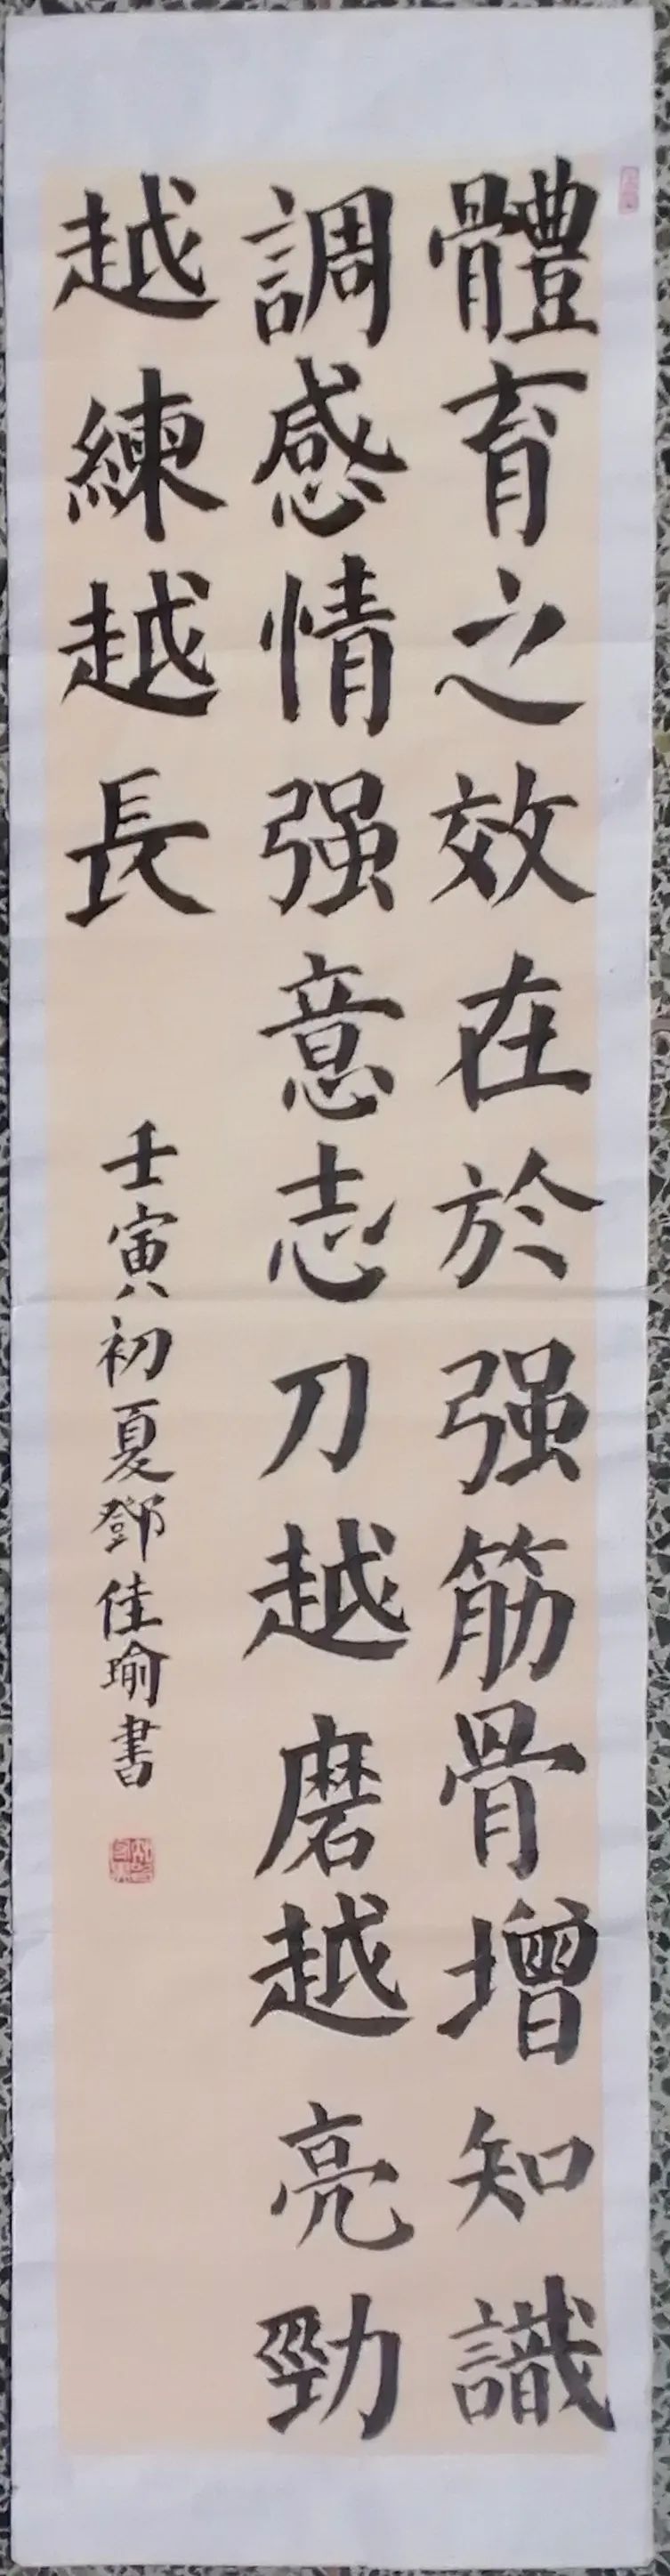 體育之效在於强筋骨增知識
調感情强意志刀越磨越亮勁
越練越長
壬寅初夏鄧佳瑜書